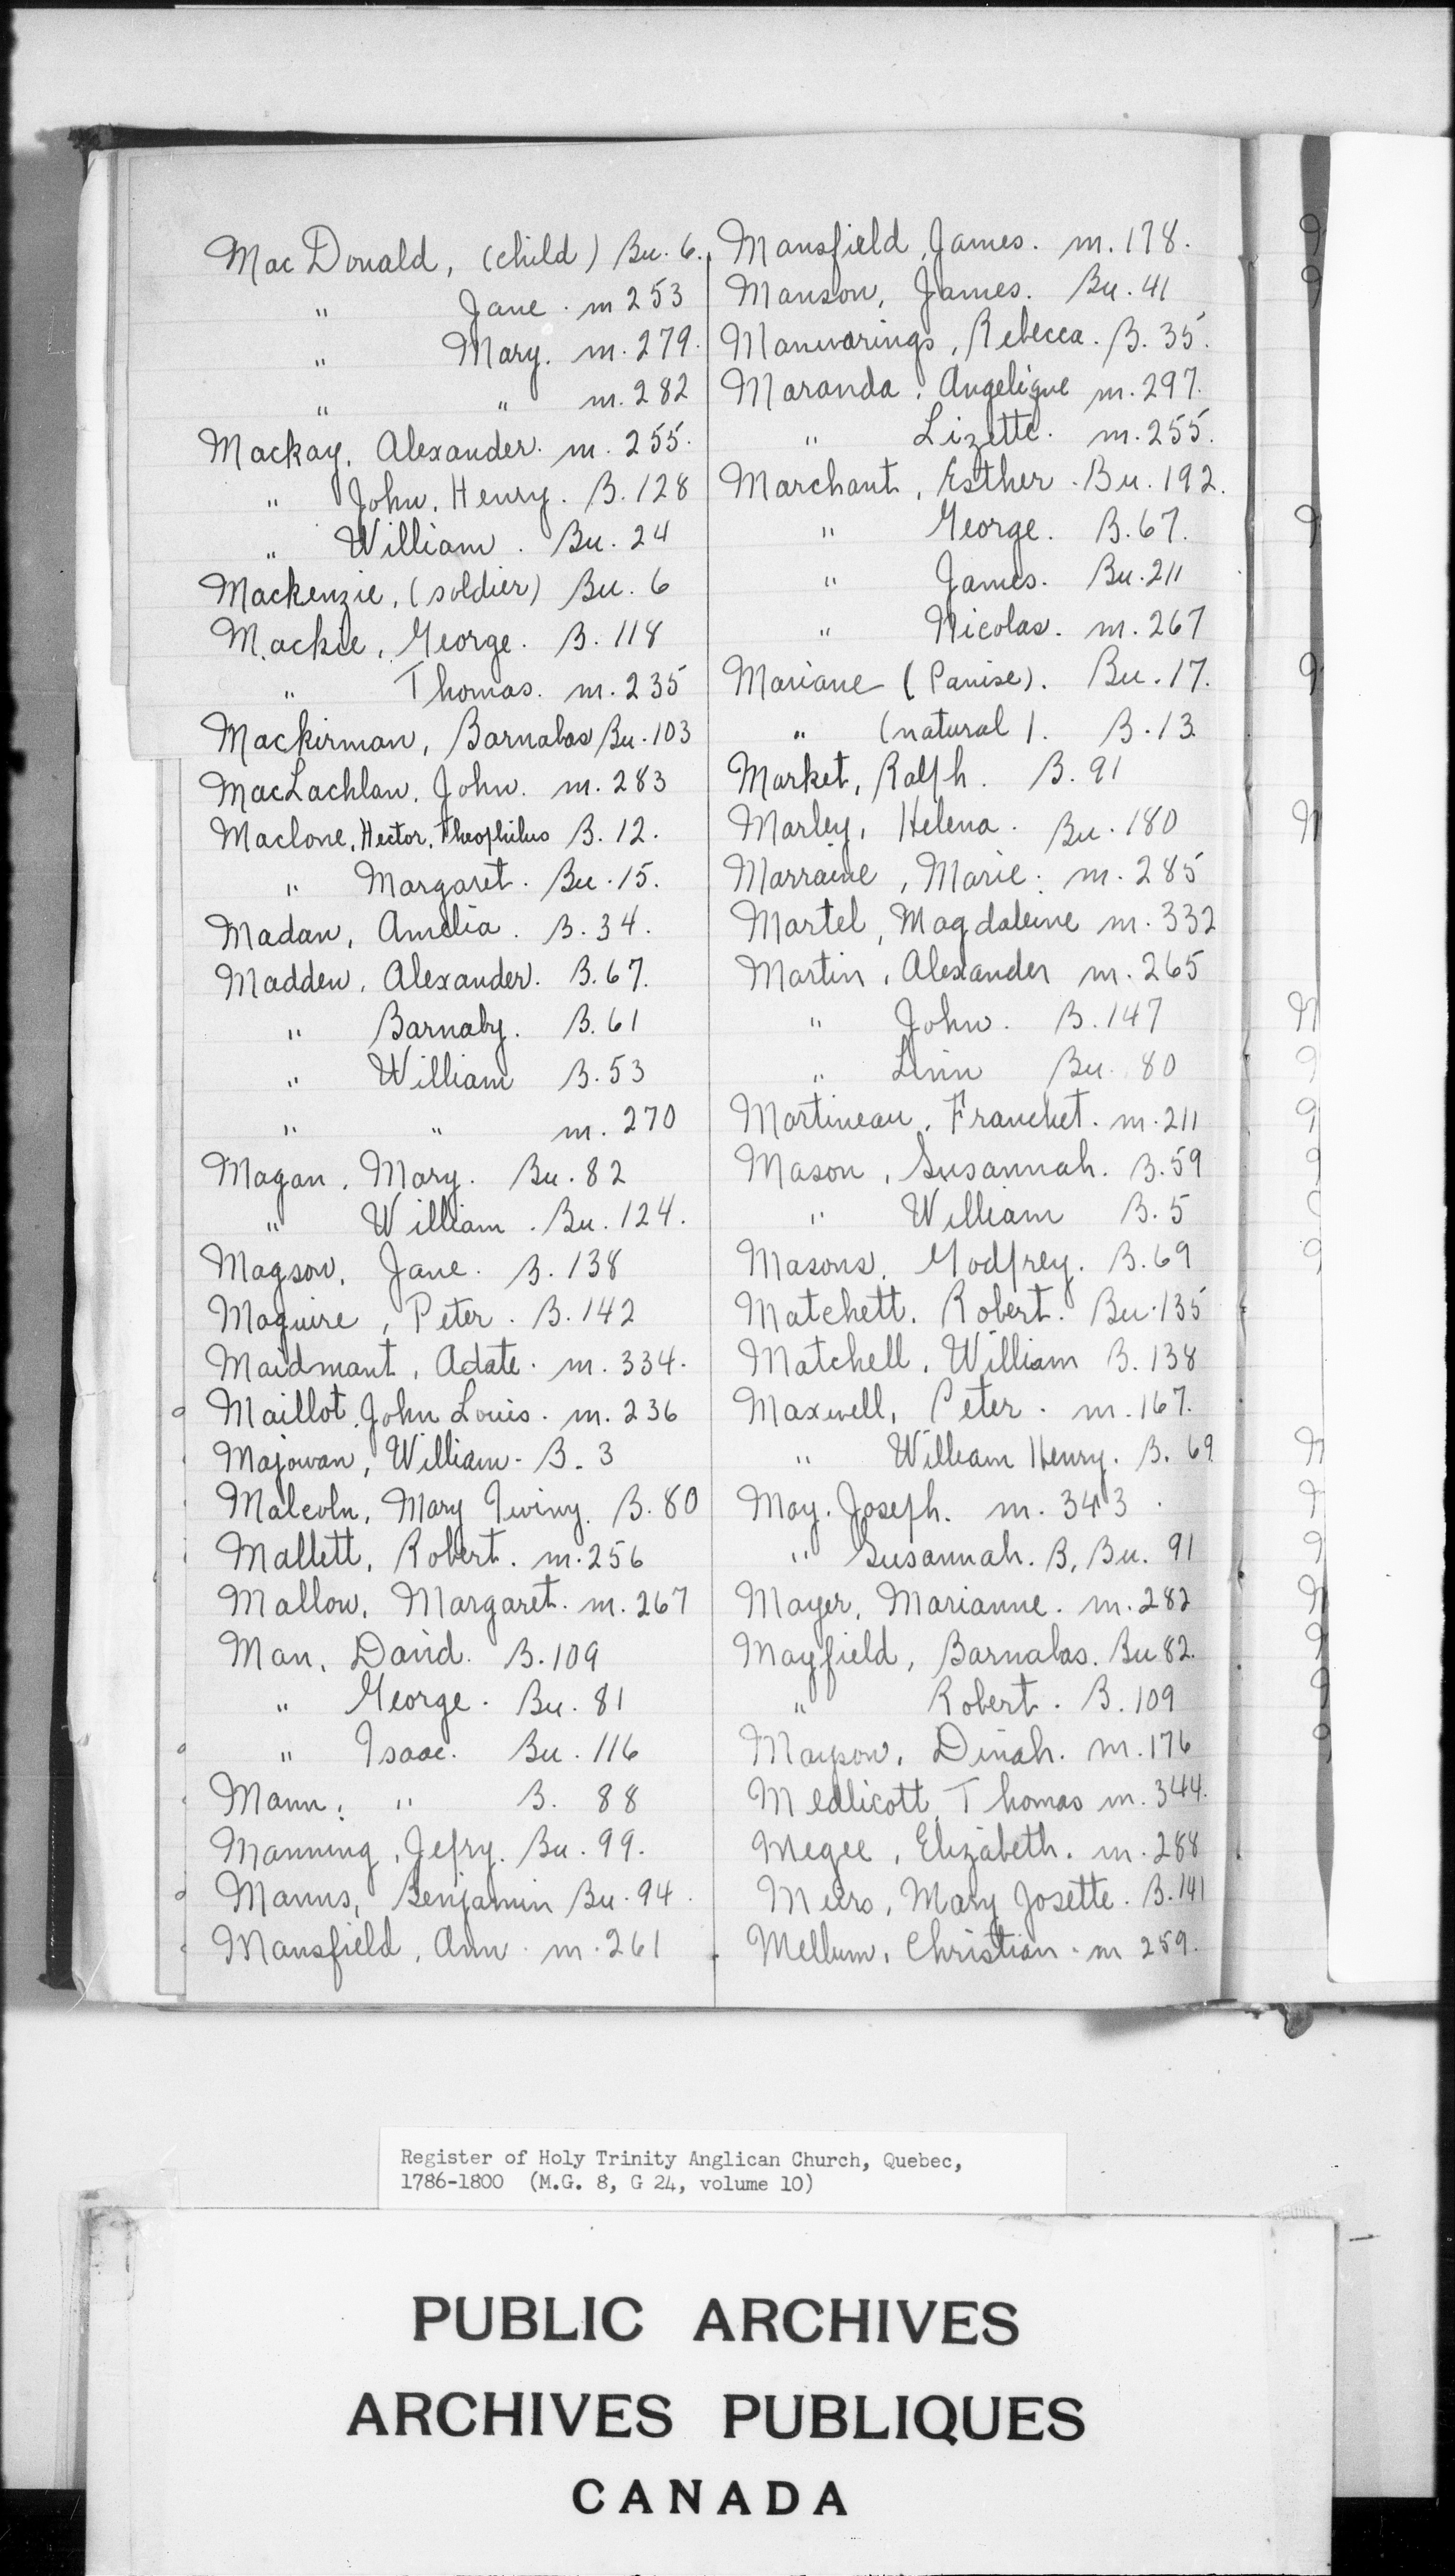 MacDonald, (child) Bu. 6.
" Jane. m 253
" Mary. m. 279.
" " m. 282
Mackay, Alexander. m. 255.
" John, Henry. B. 128
" William. Bu. 24
Mackenzie, (soldier) Bu. 6
Mackie, George. B. 118
" Thomas. m. 235
Mackirman, Barnabas Bu. 103
MacLachlan, John. m. 283
Maclone, Hector, Theophilus B. 12.
" Margaret. Bu. 15.
Madan, Amelia. B. 34.
Madden, Alexander. B. 67.
" Barnaby. B. 61
" William B. 53
" " m. 270
Magan, Mary. Bu. 82
" William. Bu. 124.
Magson, Jane. B. 138
Maguire, Peter. B. 142
Maidmant, Adate. m. 334.
Maillot, John Louis. m. 236
Majowan, William - B. 3
Malcoln, Mary Twiny. B. 80
Mallett, Robert. m. 256
Mallow, Margaret. m. 267
Man, David. B. 109
" George. Bu. 81
" Isaac. Bu. 116
Mann, " B. 88
Manning, Jefry. Bu. 99.
Manns, Benjamin Bu. 94.
Mansfield, Ann. m. 261
Mansfield, James. m. 178.
Manson, James. Bu. 41
Manwarings, Rebecca. B. 35.
Maranda, Angelique m. 297.
" Lizette. m. 255.
Marchant, Esther. Bu. 192.
" George. B. 67.
" James. Bu. 211
" Nicolas. m. 267
Mariane (Panise). Bu. 17.
" (natural). B. 13
Market, Ralph. B. 91
Marley, Helena. Bu. 180
Marraine, Marie. m. 285
Martel, Magdaleine m. 332
Martin, Alexander m. 265
" John. B. 147
" Linn Bu. 80
Martineau, Franchet. m. 211
Mason, Susannah. B. 59
" William B. 5
Masons, Godfrey. B. 69
Matchett, Robert. Bu. 135
Matchell, William B. 138
Maxwell, Peter. m. 167.
" William Henry. B. 69
May, Joseph. m. 343.
" Susannah. B, Bu. 91
Mayer, Marianne. m. 282
Mayfield, Barnabas. Bu 82.
" Robert. B. 109
Mayson, Dinah. m. 176
Medlicott, Thomas m. 344.
Megee, Elizabeth. m. 288
Meers, Mary Josette. B. 141
Mellum, Christian. m 259.
Register of Holy Trinity Anglican Church, Quebec,
1786-1800 (M.G. 8, G 24, volume 10)
PUBLIC ARCHIVES
ARCHIVES PUBLIQUES
CANADA